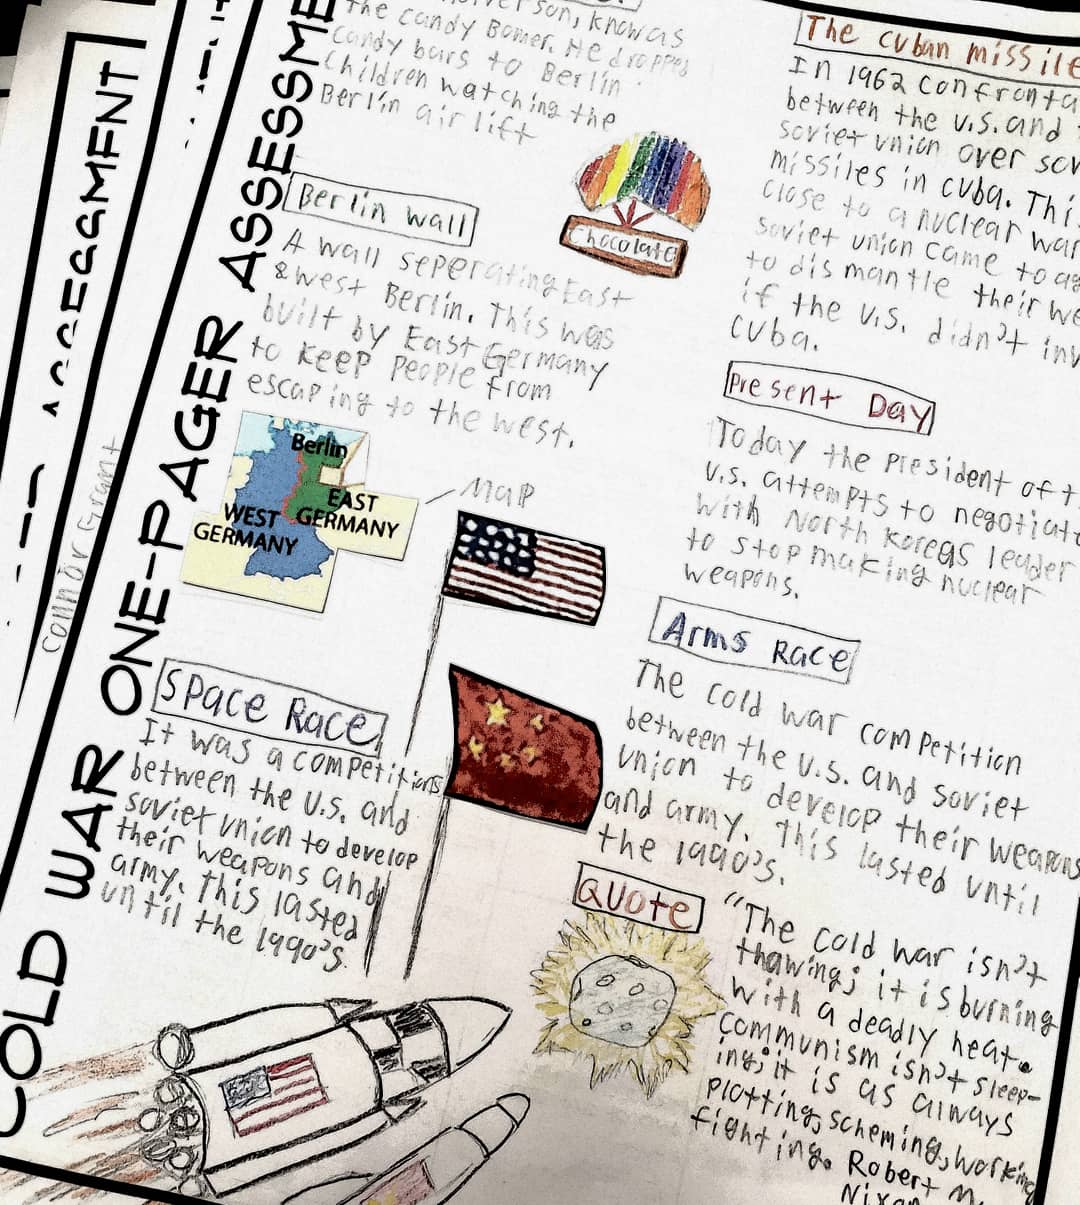 COLD WAR ONE-PAGER ASSESSME
ASSESSMENT
Connor Grant
son, knowas
the candy Bomer. He dropped
candy bars to Berlin
Children watching the
Berlin air lift
Chocolate
Berlin wall
A wall seperating East
& west Berlin. This was
built by East Germany
to keep people from
escaping to the west.
Berlin
EAST
GERMANY
WEST
GERMANY
Map
Space Race
It was a competition
between the U.S. and
soviet union to develop
their weapons and
army. This lasted
until the 1990's.
The cuban missile
In 1962 confronta
between the U.S. and
soviet union over sov
missiles in cuba. Thi
close to a nuclear war
soviet union came to ag
to dis mantle their we
if the U.S. didn't inv
cuba.
Present Day
Today the president of t
U.S. attempts to negotiate
with North Koreas leader
to stop making nuclear
weapons.
Arms Race
The cold war competition
between the U.S. and soviet
union to develop their weapons
and army. This lasted until
the 1990's.
Quote
"The cold war isn't
thawing; it is burning
with a deadly heat.
communism isn't sleep-
ing; it is as always
plotting, scheming, working
fighting. Robert M.
Nixon